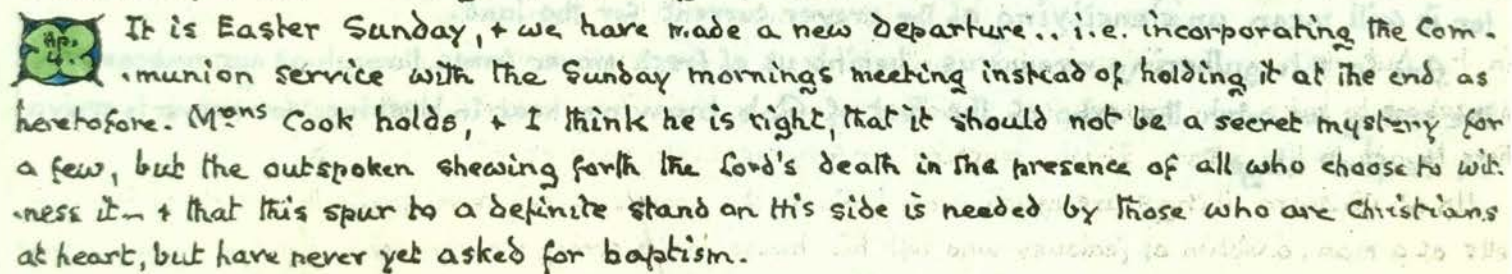 Ap. 4. It is Easter Sunday, + we have made a new departure.. i.e. incorporating the Com.
.munion service with the Sunday mornings meeting instead of holding it at the end as
heretofore. Mons Cook holds, + I think he is right, that it should not be a secret mystery for
a few, but the outspoken shewing forth the Lord's death in the presence of all who choose to wit.
.ness it - + that this spur to a definite stand on His side is needed by those who are Christians
at heart, but have never yet asked for baptism.